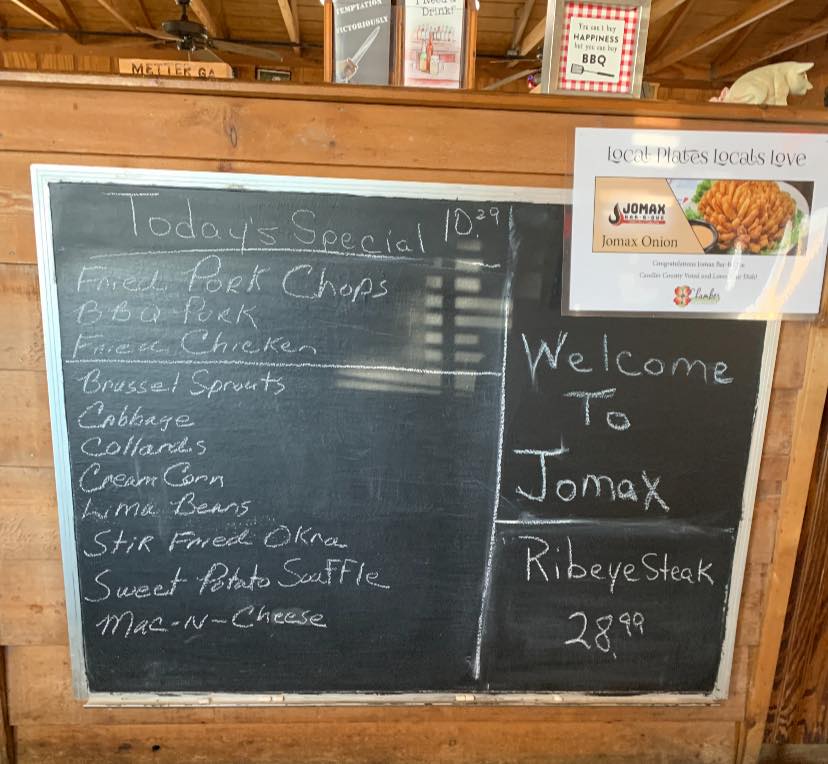 TEMPTATION
VICTORIOUSLY
I Need a
Drink!
You can't buy
HAPPINESS
but you can buy
BBQ
METTER GA
Local Plates Locals Love
JOMAX
BAR-B-QUE
Jomax Onion
Congratulations Jomax Bar-B-Q
Candler County Voted and Loves Your Dish!
Chamber
Today's Special 10.29
Fried Pork Chops
BBQ Pork
Fried Chicken
Brussel Sprouts
Cabbage
Collards
Cream Corn
Lima Beans
Stir Fried Okra
Sweet Potato Souffle
Mac-N-Cheese
Welcome
To
Jomax
Ribeye Steak
28.99